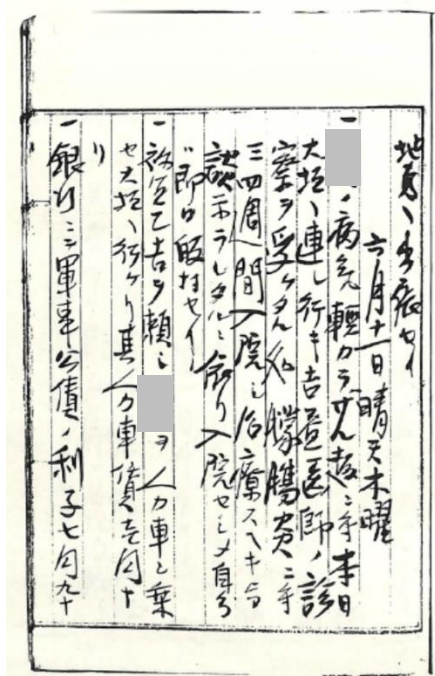 地方ヘ出張セリ
六月十一日晴天木曜
一 ノ病気軽カラザル趣ニ付本日
大垣ヘ連レ行キ吉益医師ノ診
察ヲ受ケタル処腸炎ニ付
三四周間入院シ治療スヘキ旨
談示ラレタルニ依リ入院セシメ自分
ハ即日帰村セリ
一 吉ヲ頼ミ ヲ人力車ニ乗
セ大垣ヘ行ケリ其人力車賃壱円十
リ
一 銀行ニ軍事公債ノ利子七円九十